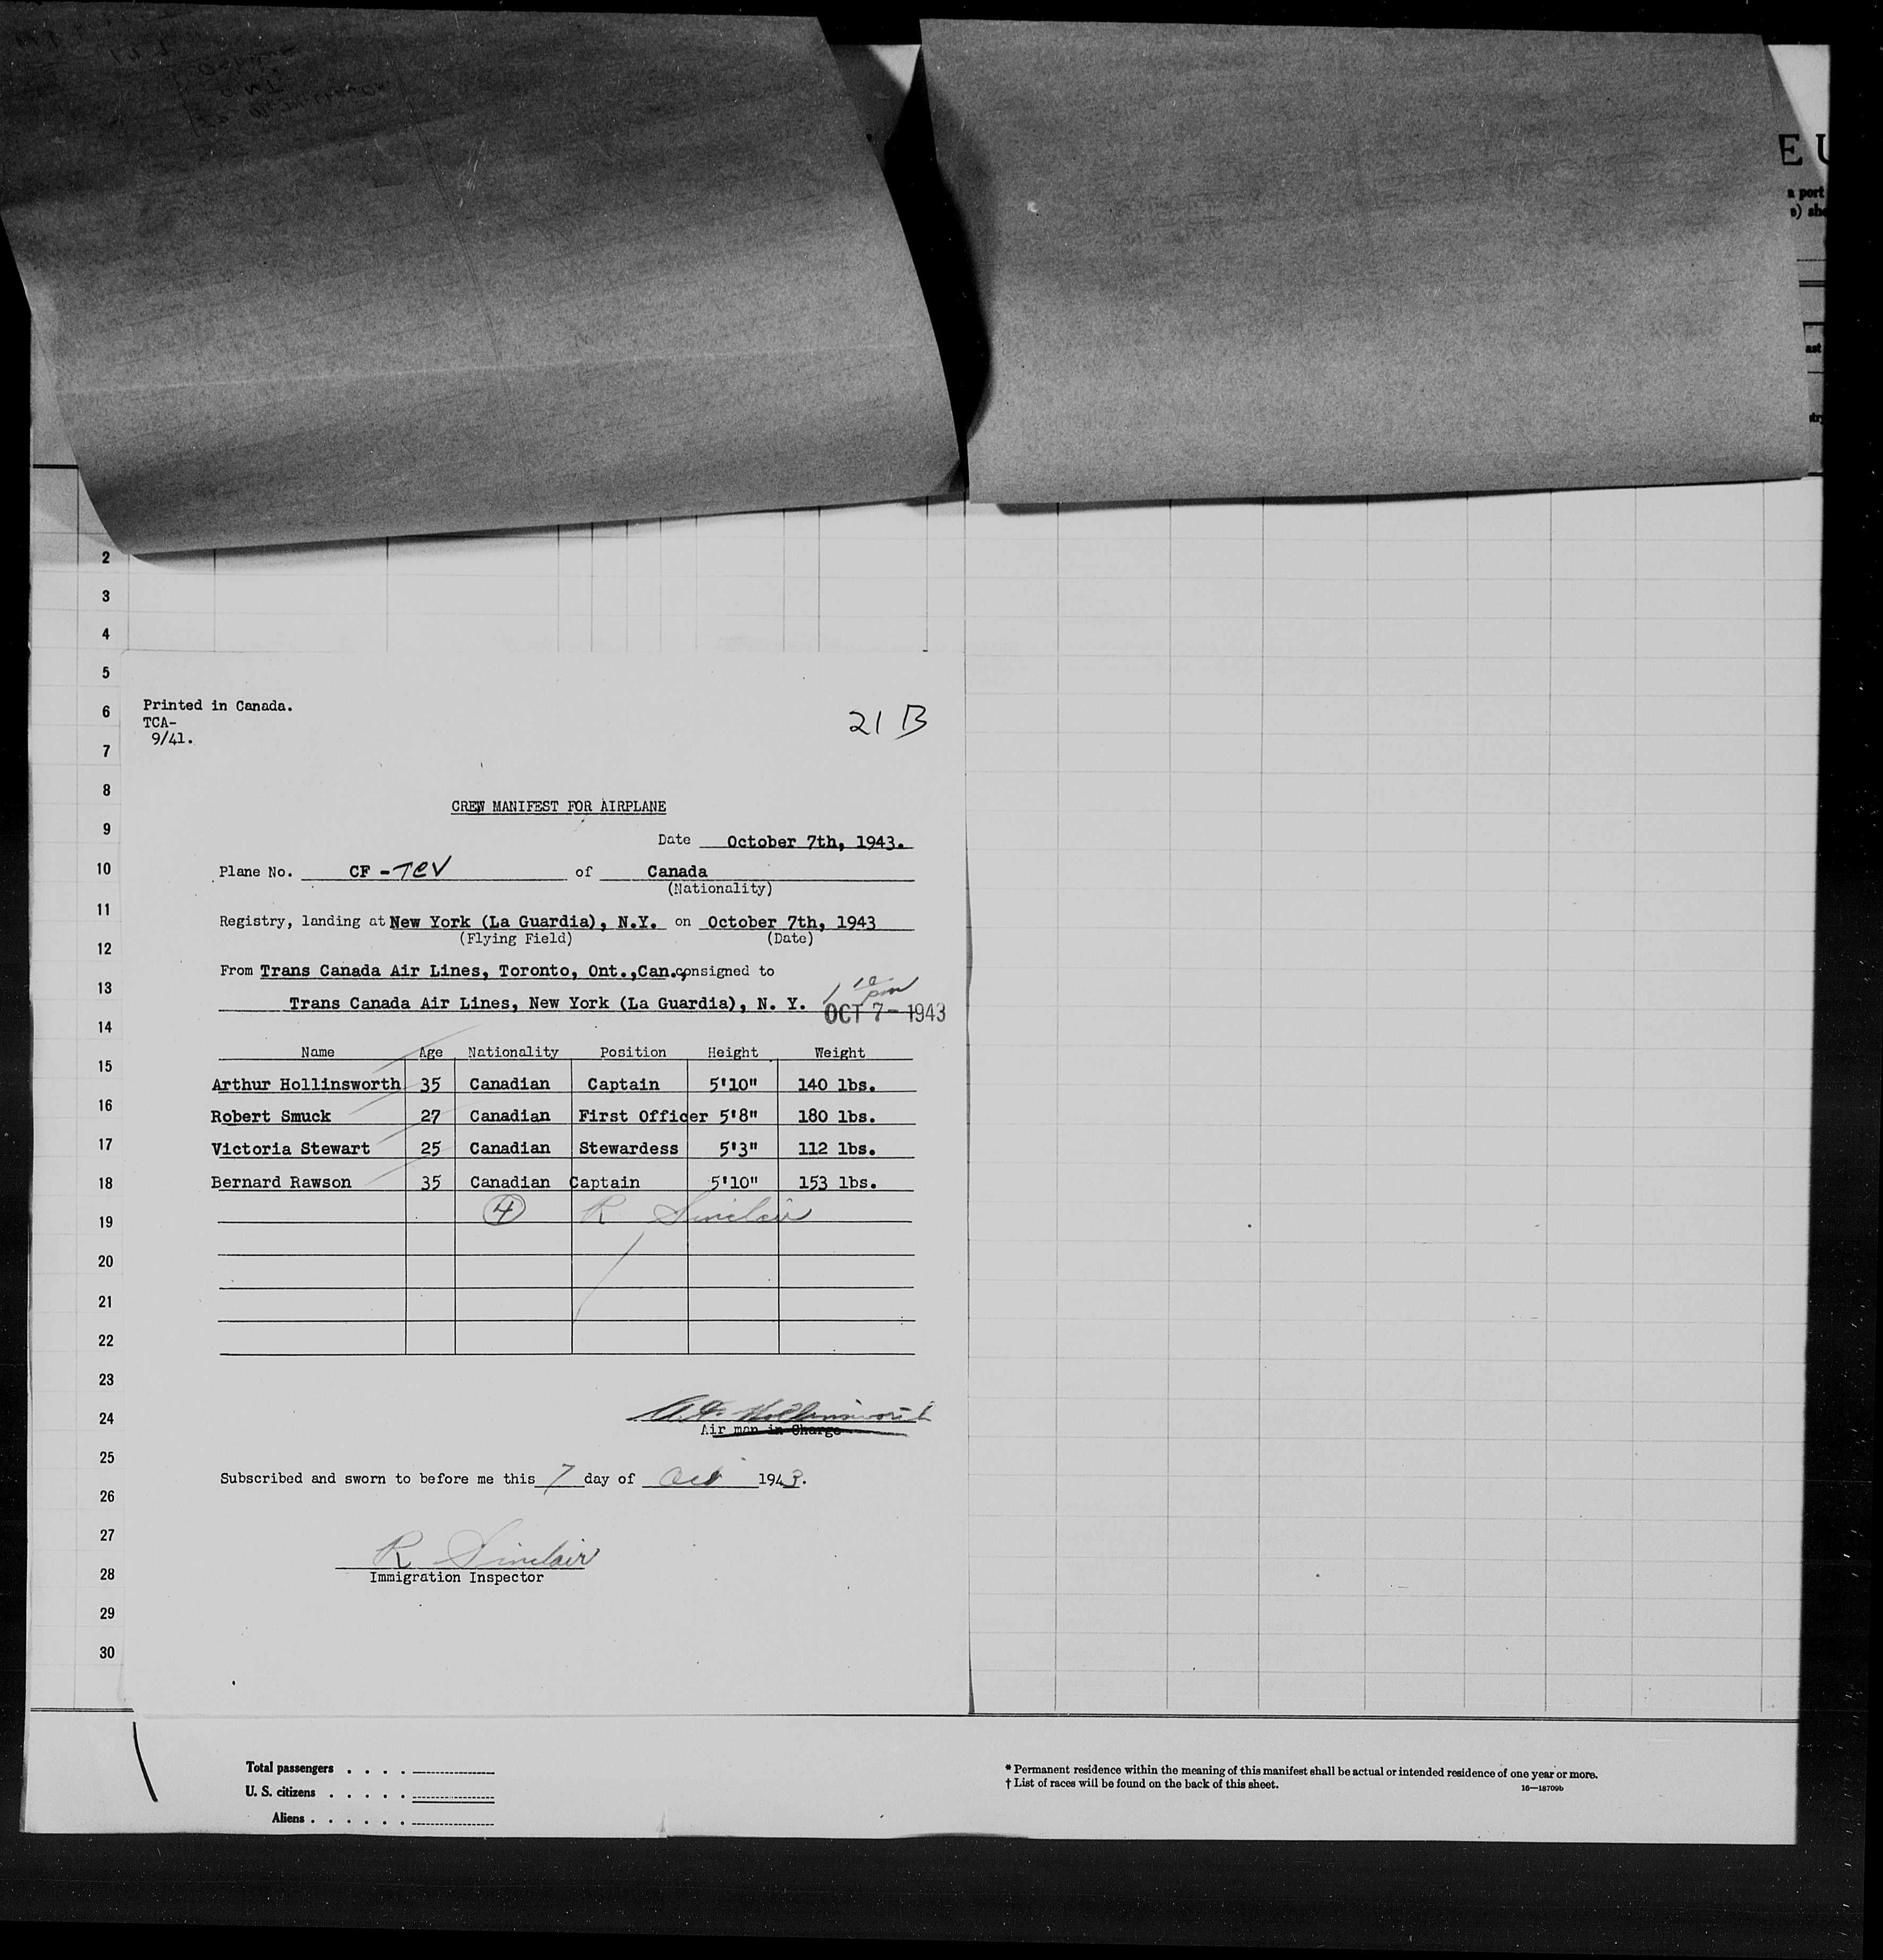 E U
a port
s) she
ast
try
2
3
4
5
6
7
8
9
10
11
12
13
14
15
16
17
18
19
20
21
22
23
24
25
26
27
28
29
30
Printed in Canada.
TCA-
9/41.
21 B
CREW MANIFEST FOR AIRPLANE
Date October 7th, 1943.
Plane No. CF - TCV of Canada
(Nationality)
Registry, landing at New York (La Guardia), N.Y. on October 7th, 1943
(Flying Field) (Date)
From Trans Canada Air Lines, Toronto, Ont.,Can.,consigned to
Trans Canada Air Lines, New York (La Guardia), N. Y.
1 10 pm
OCT 7- 1943
Name Age Nationality Position Height Weight
Arthur Hollinsworth 35 Canadian Captain 5'10" 140 lbs.
Robert Smuck 27 Canadian First Officer 5'8" 180 lbs.
Victoria Stewart 25 Canadian Stewardess 5'3" 112 lbs.
Bernard Rawson 35 Canadian Captain 5'10" 153 lbs.
4 R Sinclair
Hollinsworth
Air man in Charge
Subscribed and sworn to before me this 7 day of Oct 1943.
R Sinclair
Immigration Inspector
Total passengers . . . .
U. S. citizens . . . . .
Aliens . . . . . .
* Permanent residence within the meaning of this manifest shall be actual or intended residence of one year or more.
† List of races will be found on the back of this sheet.
16—18709b